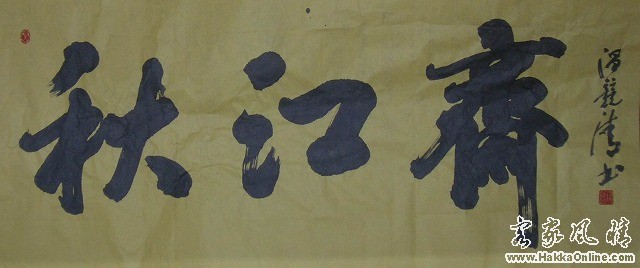 秋江斋
龍清书
客家風情
www.HakkaOnline.com